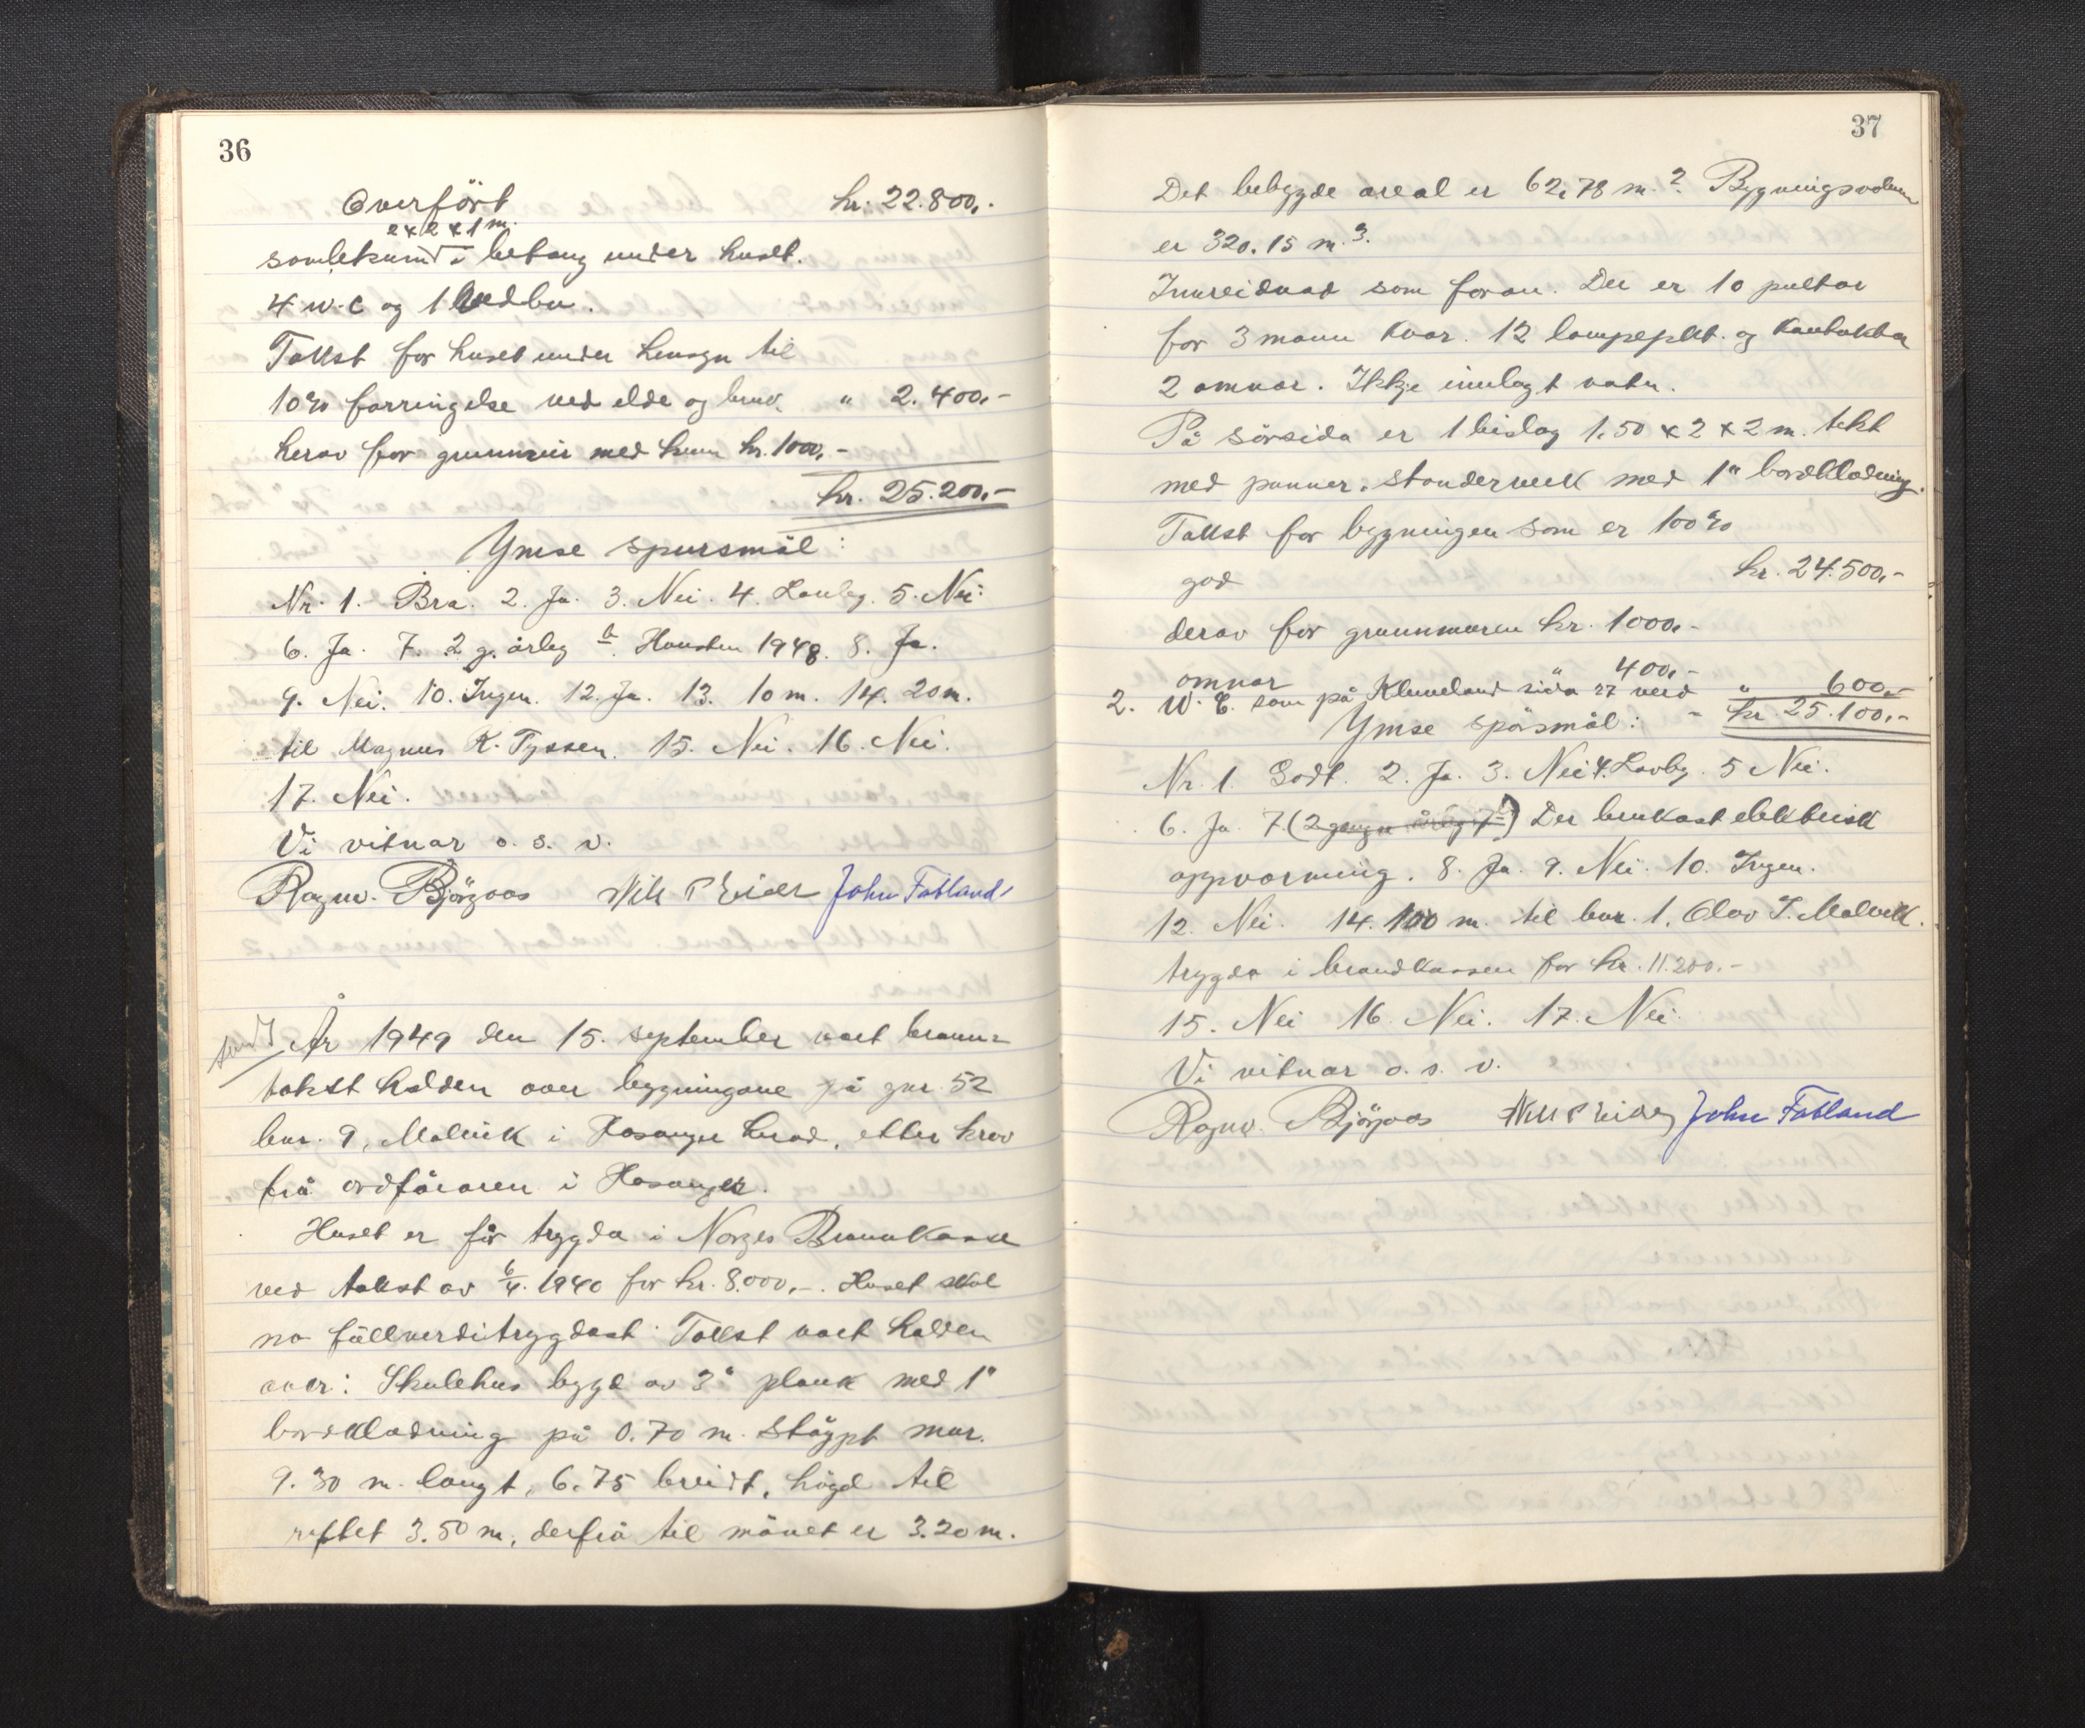 36
Overfört kr. 22.800,-
2 x 2 x 1 m.
samlekum i betong under huset.
4 W.C og 1 vedbu.
Takst for huset under hensyn til
10% forringelse ved elde og bruk " 2.400,-
herav for grunnmur med kum kr. 1000,-
kr. 25.200,-
Ymse spursmål:
Nr. 1. Bra. 2. Ja. 3. Nei. 4. Lovleg. 5. Nei.
6. Ja. 7. 2 g. årleg b. Hausten 1948. 8. Ja.
9. Nei. 10. Ingen. 12. Ja. 13. 10 m. 14. 20 m.
til Magnus K. Tyssen. 15. Nei. 16. Nei.
17. Nei.
Vi vitnar o. s. v.
Ragnv. Björgaas Nils P Eide John Fotland
sendt
År 1949 den 15. september vart brann=
takst halden over bygningane på gnr. 52
bnr. 9, Malvik i Hosanger herad, etter krav
frå ordföraren i Hosanger.
Huset er för trygda i Norges Brannkasse
ved takst av 6/4. 1940 for kr. 8.000,-. Huset skal
no fullverditrygdast. Takst vart halden
over: Skulehus bygd av 3" plank med 1"
bordkledning på 0.70 m. stöypt mur.
9.30 m. langt, 6.75 breidt, högd til
raftet 3.50 m, derfrå til mönet er 3.20 m.
37
Det bebygde areal er 62,78 m.2 Bygningsvolum
er 320.15 m.3.
Innreidnad som foran. Der er 10 pultar
for 3 mann kvar. 12 lampepkt. og kontaktar
2 omnar. Ikkje innlagt vatn.
På sörsida er 1 bislag 1.50 x 2 x 2 m. tekt
med panner. standerverk med 1" bordkledning.
Takst for bygningen som er 100%
god kr. 24.500,-
derav for grunnmuren kr. 1000,-
omnar " 400,-
2. W.C. som på Kleiveland sida 27 verd " 600,-
Ymse spörsmål: - kr. 25.100,-
Nr. 1. Godt. 2. Ja. 3. Nei 4. Lovleg. 5 Nei.
6. Ja 7. (2 gonger årleg) Der brukast elektrisk
oppvarming. 8. Ja. 9. Nei. 10. Ingen.
12. Nei. 14. 100 m. til bnr. 1, Olav I. Malvik.
trygda i brandkassen for kr. 11.200.-
15. Nei 16. Nei. 17. Nei.
Vi vitnar o. s. v.
Ragnv. Björgaas Nils P Eide John Fotland